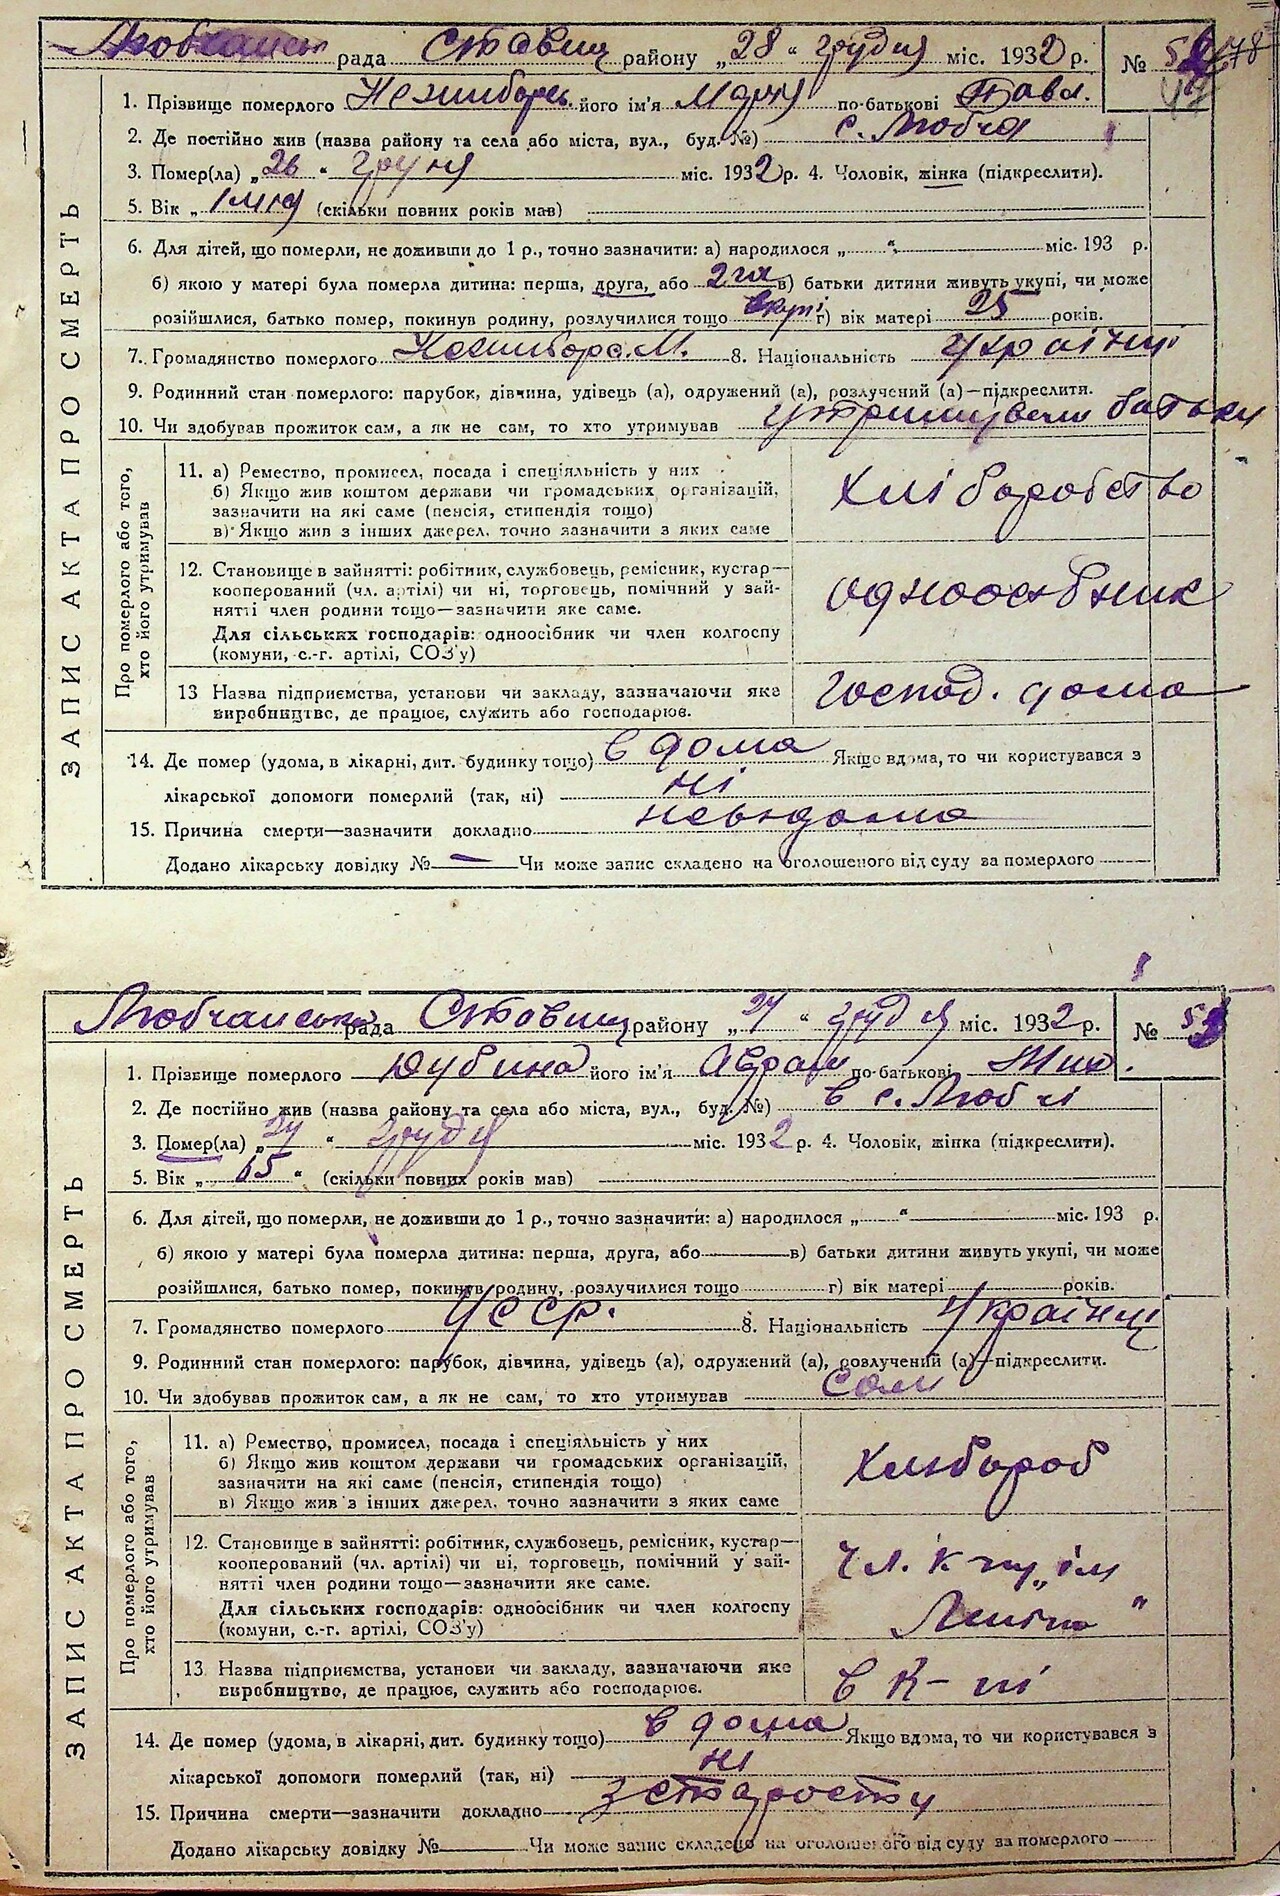 Любчанськ рада Ставищ району „28“ грудня міс. 1932 р. №
1. Прізвище померлого його ім'я Марія по-батькові Павл.
2. Де постійно жив (назва району та села або міста, вул., буд. №) с. Любча
3. Помер(ла) „26“ грудня міс. 1932 р. 4. Чоловік, жінка (підкреслити).
5. Вік „ (скільки повних років мав)
6. Для дітей, що померли, не доживши до 1 р., точно зазначити: а) народилося „ “ міс. 193 р.
б) якою у матері була померла дитина: перша, друга, або 2га в) батьки дитини живуть укупі, чи може
розійшлися, батько помер, покинув родину, розлучилися тощо вкупі г) вік матері 25 років.
7. Громадянство померлого 8. Національність Українці
9. Родинний стан померлого: парубок, дівчина, удівець (а), одружений (а), розлучений (а)—підкреслити.
10. Чи здобував прожиток сам, а як не сам, то хто утримував утримували батьки
ЗАПИС АКТА ПРО СМЕРТЬ
Про померлого або того,
хто його утримував
11. а) Ремество, промисел, посада і спеціяльність у них
б) Якщо жив коштом держави чи громадських організацій,
зазначити на які саме (пенсія, стипендія тощо)
в) Якщо жив з інших джерел, точно зазначити з яких саме
Хліборобство
12. Становище в зайнятті: робітник, службовець, ремісник, кустар—
кооперований (чл. артілі) чи ні, торговець, помічний у зай-
нятті член родини тощо—зазначити яке саме.
Для сільських господарів: одноосібник чи член колгоспу
(комуни, с.-г. артілі, СОЗ'у)
одноосібник
13 Назва підприємства, установи чи закладу, зазначаючи яке
виробництво, де працює, служить або господарює.
господ. дома
14. Де помер (удома, в лікарні, дит. будинку тощо) в дома Якщо вдома, то чи користувався з
лікарської допомоги померлий (так, ні) ні
15. Причина смерти—зазначити докладно невідома
Додано лікарську довідку № — Чи може запис складено на оголошеного від суду за померлого
Любчанська рада Ставищ району „27“ грудня міс. 1932 р. №
1. Прізвище померлого Дубина його ім'я Аврам по-батькові
2. Де постійно жив (назва району та села або міста, вул., буд. №) в с. Любчі
3. Помер(ла) „27“ грудня міс. 1932 р. 4. Чоловік, жінка (підкреслити).
5. Вік „65“ (скільки повних років мав)
6. Для дітей, що померли, не доживши до 1 р., точно зазначити: а) народилося „ “ міс. 193 р.
б) якою у матері була померла дитина: перша, друга, або в) батьки дитини живуть укупі, чи може
розійшлися, батько помер, покинув родину, розлучилися тощо г) вік матері років.
7. Громадянство померлого УССР. 8. Національність Українці
9. Родинний стан померлого: парубок, дівчина, удівець (а), одружений (а), розлучений (а)—підкреслити.
10. Чи здобував прожиток сам, а як не сам, то хто утримував сам
ЗАПИС АКТА ПРО СМЕРТЬ
Про померлого або того,
хто його утримував
11. а) Ремество, промисел, посада і спеціяльність у них
б) Якщо жив коштом держави чи громадських організацій,
зазначити на які саме (пенсія, стипендія тощо)
в) Якщо жив з інших джерел, точно зазначити з яких саме
Хлібороб
12. Становище в зайнятті: робітник, службовець, ремісник, кустар—
кооперований (чл. артілі) чи ні, торговець, помічний у зай-
нятті член родини тощо—зазначити яке саме.
Для сільських господарів: одноосібник чи член колгоспу
(комуни, с.-г. артілі, СОЗ'у)
чл. к-пу „ім
Леніна“
13. Назва підприємства, установи чи закладу, зазначаючи яке
виробництво, де працює, служить або господарює.
в к-пі
14. Де помер (удома, в лікарні, дит. будинку тощо) в дома Якщо вдома, то чи користувався з
лікарської допомоги померлий (так, ні) ні
15. Причина смерти—зазначити докладно з старости
Додано лікарську довідку № Чи може запис складено на оголошеного від суду за померлого